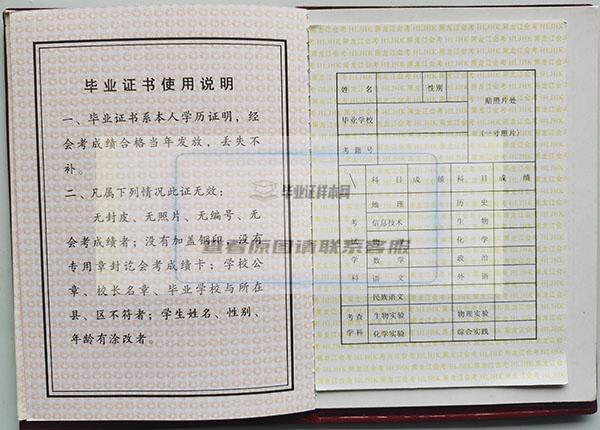 毕业证书使用说明
一、毕业证书系本人学历证明，经
会考成绩合格当年发放，丢失不
补。
二、凡属下列情况此证无效：
无封皮、无照片、无编号、无
会考成绩者；没有加盖钢印、没有
专用章封讫会考成绩卡；学校公
章、校长名章、毕业学校与所在
县、区不符者；学生姓名、性别、
年龄有涂改者。
毕业证样本网
查看原图请联系客服
黑龙江会考 HLJHK 黑龙江会考 HLJHK
姓 名 性别
贴照片处
毕业学校
（一寸照片）
考籍号
科 目 成 绩 科 目 成 绩
地 理 历 史
考 信息技术 生 物
化 学
学 数 学 政 治
科 语 文 外 语
民族语文
考查 生物实验 物理实验
学科 化学实验 综合实践